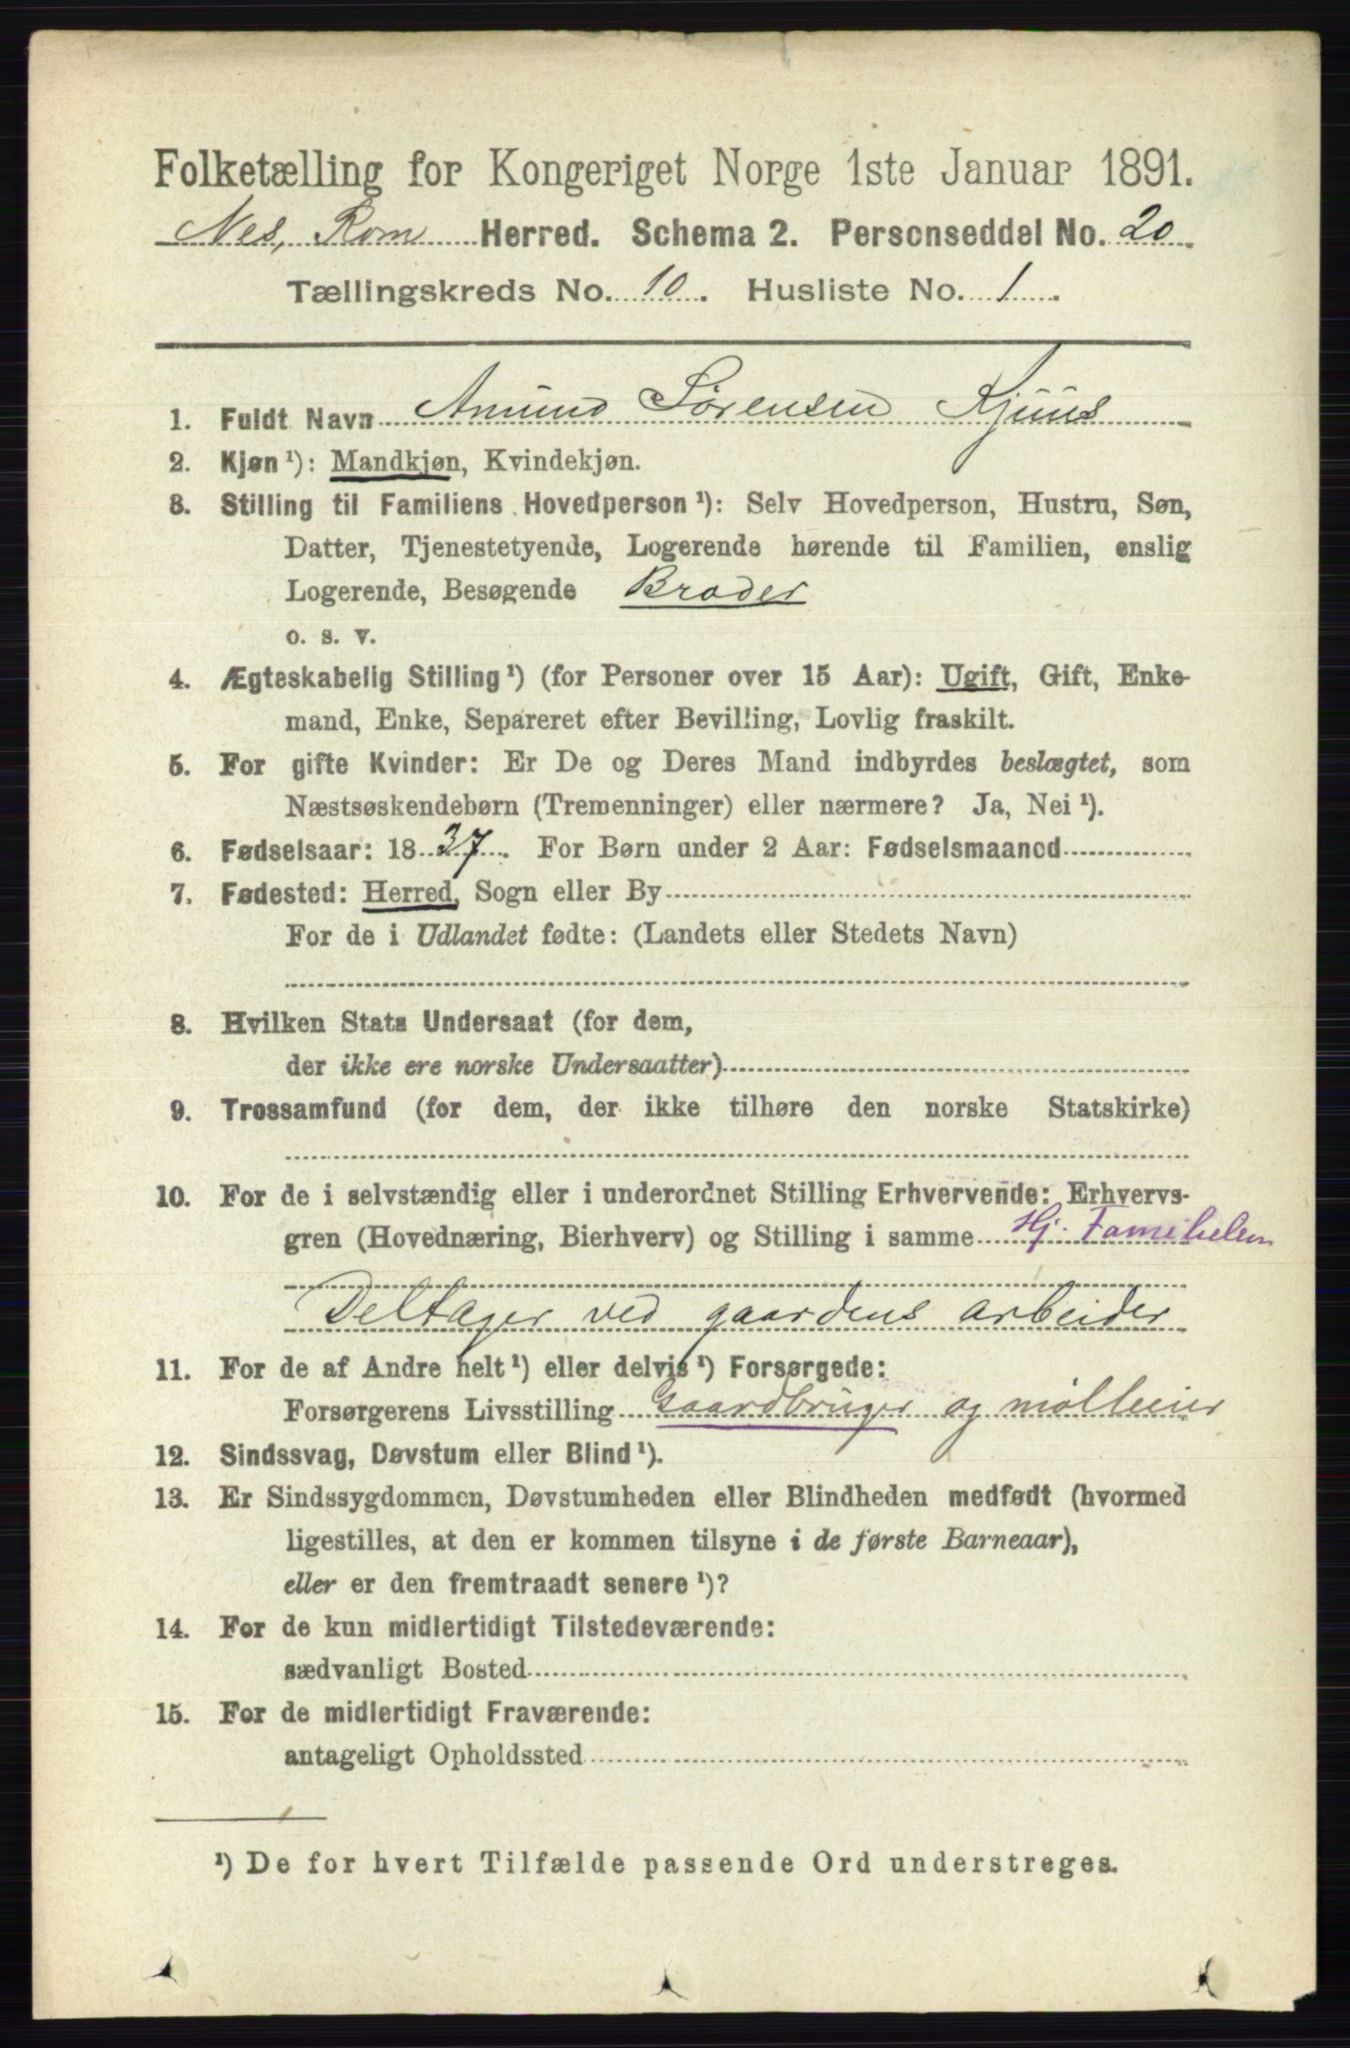 Folketælling for Kongeriget Norge 1ste Januar 1891.
Nes, Rom Herred. Schema 2. Personseddel No. 20
Tællingskreds No. 10. Husliste No. 1.
1. Fuldt Navn Amund Sørensen Kjuus
2. Kjøn ¹): Mandkjøn, Kvindekjøn.
3. Stilling til Familiens Hovedperson ¹): Selv Hovedperson, Hustru, Søn,
Datter, Tjenestetyende, Logerende hørende til Familien, enslig
Logerende, Besøgende Broder
o. s. v.
4. Ægteskabelig Stilling ¹) (for Personer over 15 Aar): Ugift, Gift, Enke-
mand, Enke, Separeret efter Bevilling, Lovlig fraskilt.
5. For gifte Kvinder: Er De og Deres Mand indbyrdes beslægtet, som
Næstsøskendebørn (Tremenninger) eller nærmere? Ja, Nei ¹).
6. Fødselsaar: 1837. For Børn under 2 Aar: Fødselsmaaned
7. Fødested: Herred, Sogn eller By
For de i Udlandet fødte: (Landets eller Stedets Navn)
8. Hvilken Stats Undersaat (for dem,
der ikke ere norske Undersaatter)
9. Trossamfund (for dem, der ikke tilhøre den norske Statskirke)
10. For de i selvstændig eller i underordnet Stilling Erhvervende: Erhvervs-
gren (Hovednæring, Bierhverv) og Stilling i samme Hj. Familielem
Deltager ved gaardens arbeider
11. For de af Andre helt ¹) eller delvis ¹) Forsørgede:
Forsørgerens Livsstilling Gaardbruger og mølleeier
12. Sindssvag, Døvstum eller Blind ¹).
13. Er Sindssygdommen, Døvstumheden eller Blindheden medfødt (hvormed
ligestilles, at den er kommen tilsyne i de første Barneaar),
eller er den fremtraadt senere ¹)?
14. For de kun midlertidigt Tilstedeværende:
sædvanligt Bosted
15. For de midlertidigt Fraværende:
antageligt Opholdssted
¹) De for hvert Tilfælde passende Ord understreges.